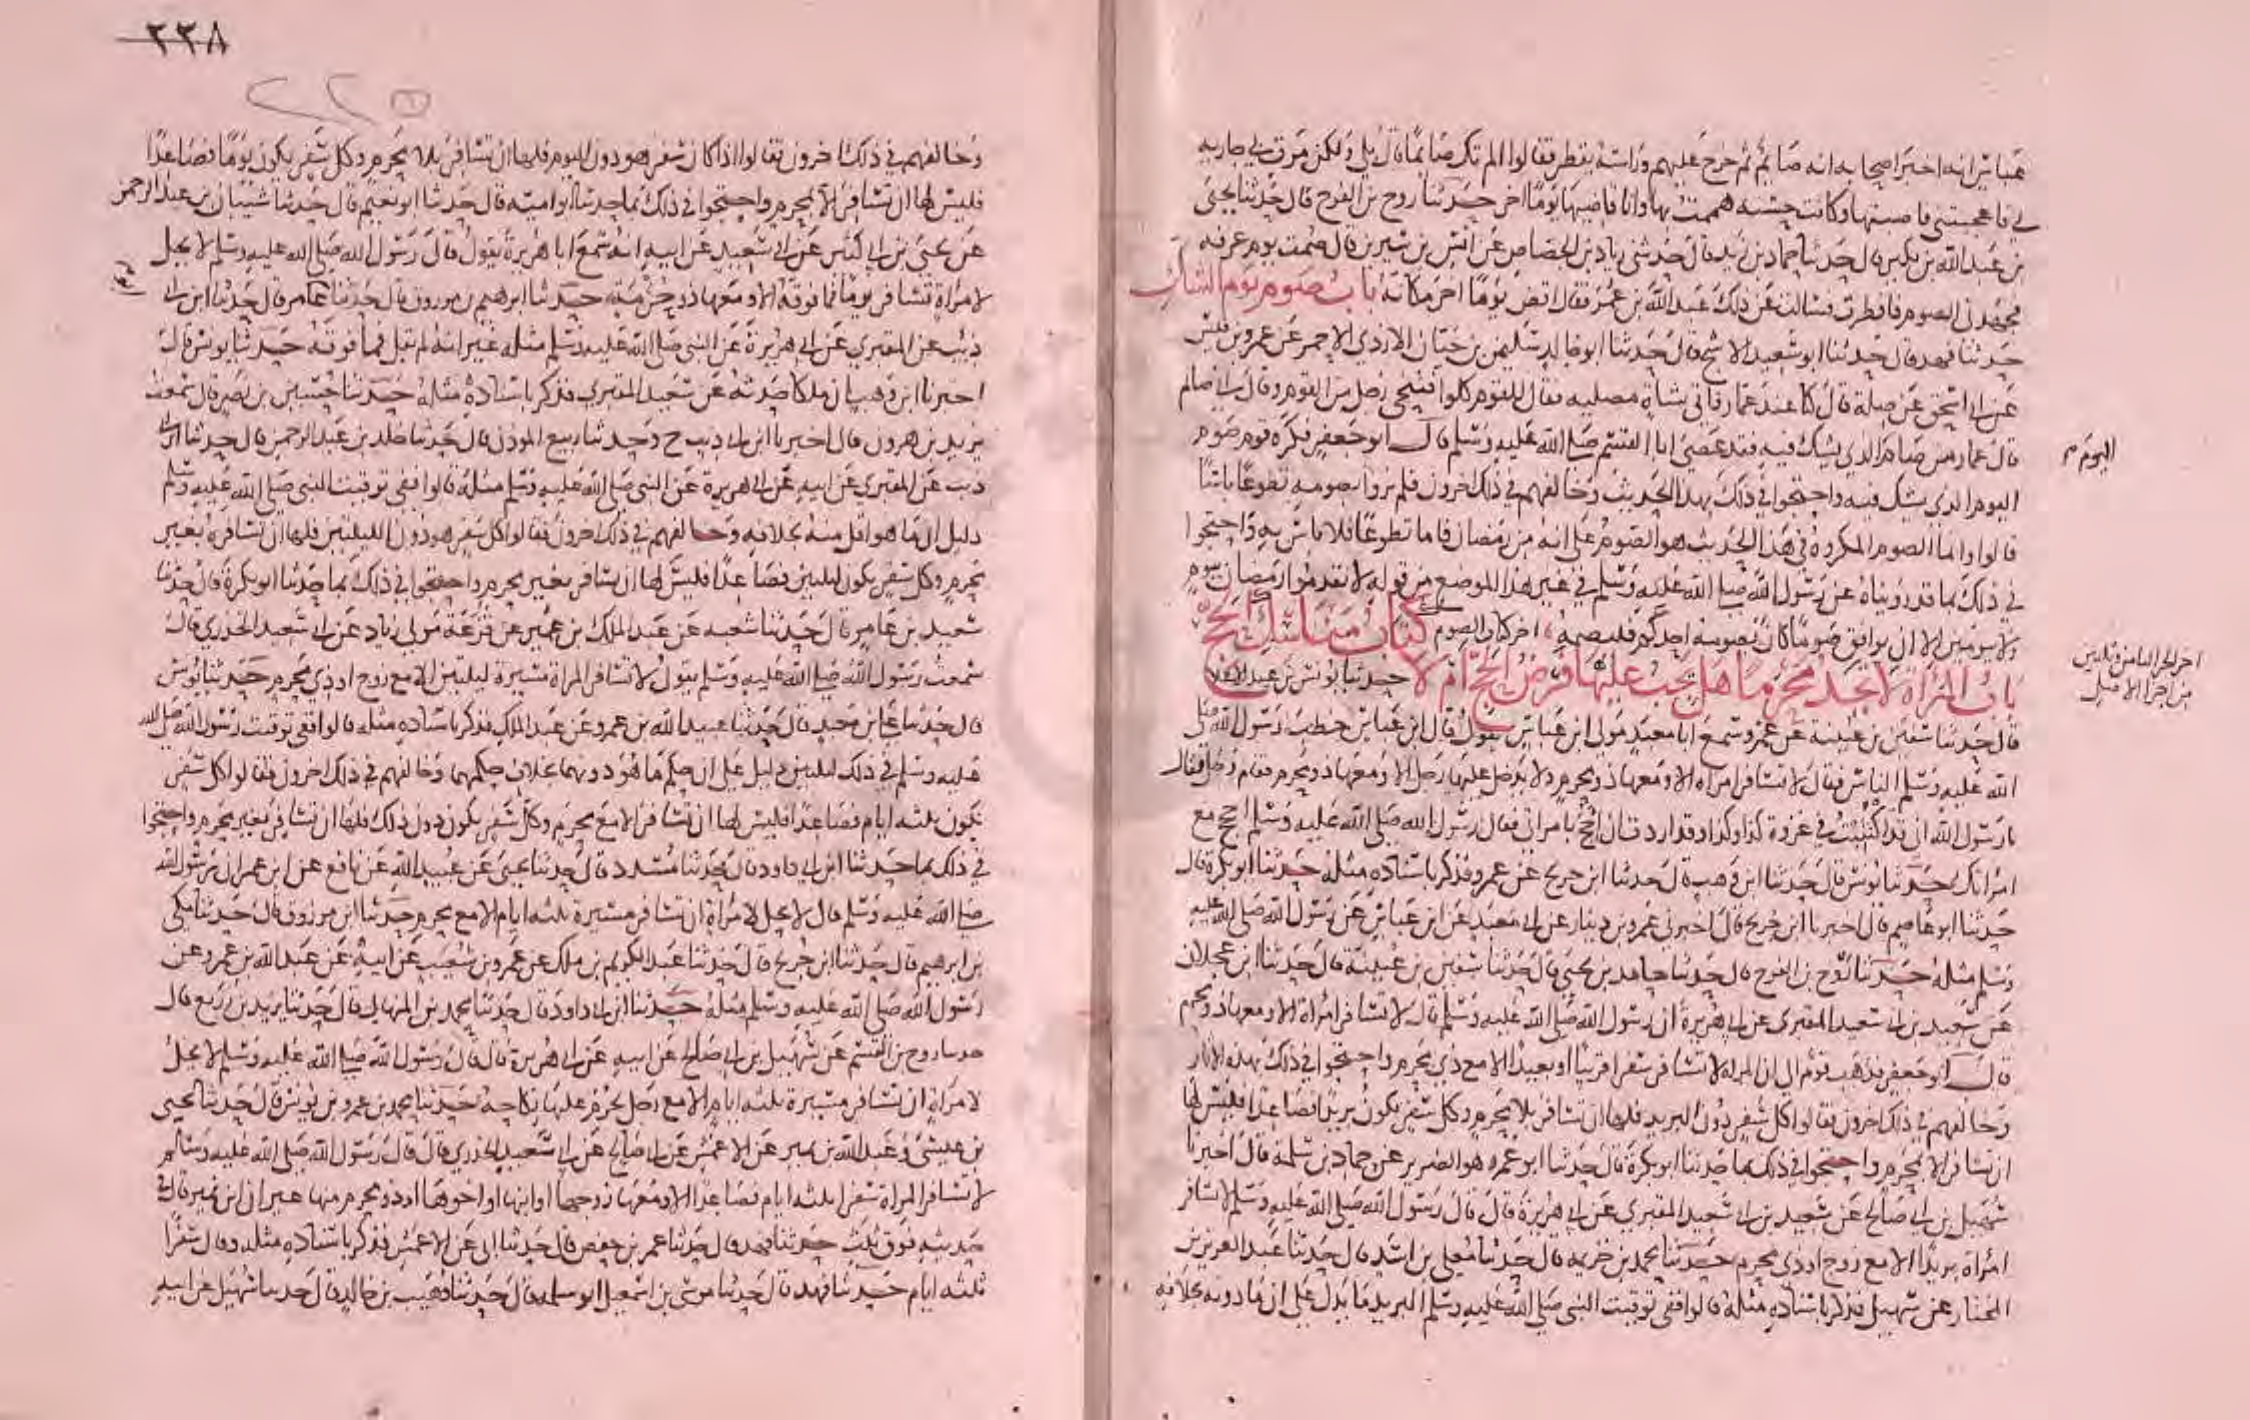 عباس انه اخبر اصحابه انه صايم ثم خرج عليهم وراسه يقطر فقالوا الم تك صايما قال بلى ولكن مرت بي جارية
لي فاعجبتني فاصبتها وكانت حسنة هممت بها وانا قاضيها يوما اخر حدثنا روح بن الفرج قال حدثنا يحيى
بن عبد الله بن بكير قال حدثنا حماد بن زيد قال حدثني زياد بن الجصاص عن انس بن سيرين قال صمت يوم عرفة
فجهدني الصوم فافطرت فسالت عن ذلك عبد الله بن عمر فقال اقض يوما اخر مكانه باب صوم يوم الشك
حدثنا فهد قال حدثنا ابو سعيد الاشج قال حدثنا ابو خالد سليمن بن حيان الازدي الاحمر عن عمرو بن قيس
عن ابي اسحق عن صلة قال كنا عند عمار فاتي بشاة مصلية فقال للقوم كلوا فتنحى رجل من القوم وقال اني صايم
قال عمار من صام الذي يشك فيه فقد عصى ابا القسم صلى الله عليه وسلم قال ابو جعفر فكره قوم صوم
اليوم
اليوم الذي يشك فيه واحتجوا في ذلك بهذا الحديث وخالفهم في ذلك اخرون فلم يروا بصومه تطوعا باسا
قالوا وانما الصوم المكروه في هذا الحديث هو الصوم على انه من رمضان فاما تطوعا فلا باس به واحتجوا
في ذلك بما قد رويناه عن رسول الله صلى الله عليه وسلم في غير هذا الموضع من قوله لا تقدموا رمضان بيوم
ولا بيومين الا ان يوافق صوما كان يصومه احدكم فليصمه اخر كتاب الصيم كتاب مناسك الحج
باب المراة لا تجد محرما هل يجب عليها فرض الحج ام لا حدثنا يونس بن عبد الاعلى
قال حدثنا سفين بن عيينة عن عمرو سمع ابا معبد مولى ابن عباس يقول قال ابن عباس خطب رسول الله صلى
الله عليه وسلم الناس فقال لا تسافر امراة الا ومعها ذو محرم ولا يدخل عليها رجل الا ومعها ذو محرم فقام رجل فقال
يا رسول الله اني قد اكتتبت في غزوة كذا وكذا وقد اردت ان احج بامراتي فقال رسول الله صلى الله عليه وسلم احجج مع
امراتك حدثنا يونس قال حدثنا ابن وهب قال حدثنا ابن جريج عن عمرو فذكر باسناده مثله حدثنا ابو بكرة قال
حدثنا ابو عاصم قال اخبرنا ابن جريج قال اخبرني عمرو بن دينار عن ابي معبد عن ابن عباس عن رسول الله صلى الله عليه
وسلم مثله حدثنا روح بن الفرج قال حدثنا حامد بن يحيى قال حدثنا سفين بن عيينة قال حدثنا ابن عجلان
عن سعيد بن ابي سعيد المقبري عن ابي هريرة ان رسول الله صلى الله عليه وسلم قال لا تسافر امراة الا ومعها ذو محرم
قال ابو جعفر فذهب قوم الى ان المراة لا تسافر سفرا قريبا او بعيدا الا مع ذي محرم واحتجوا في ذلك بهذه الاثار
وخالفهم في ذلك اخرون فقالوا كل سفر دون البريد فلها ان تسافر بلا محرم وكل سفر يكون بريدا فصاعدا فليس لها
ان تسافر الا بمحرم واحتجوا في ذلك بما حدثنا ابو بكرة قال حدثنا ابو عمر هو الضرير عن حماد بن سلمة قال اخبرنا
سهيل بن ابي صالح عن سعيد بن ابي سعيد المقبري عن ابي هريرة قال قال رسول الله صلى الله عليه وسلم لا تسافر
امراة بريدا الا مع زوج او ذي محرم حدثنا محمد بن خزيمة قال حدثنا معلى بن اسد قال حدثنا عبد العزيز بن
المختار عن سهيل فذكر باسناده مثله قالوا ففي توقيت النبي صلى الله عليه وسلم البريد ما يدل على ان ما دونه بخلافه
اخر الجزء الثامن وثلثين
من اجزاء الاصل
٢٣٨
وخالفهم في ذلك اخرون فقالوا اذا كان سفر هو دون اليوم فلها ان تسافر بلا محرم وكل سفر يكون يوما فصاعدا
فليس لها ان تسافر الا بمحرم واحتجوا في ذلك بما حدثنا ابو امية قال حدثنا ابو نعيم قال حدثنا شيبان بن عبد الرحمن
عن يحيى بن ابي كثير عن ابي سعيد عن ابيه انه سمع ابا هريرة يقول قال رسول الله صلى الله عليه وسلم لا يحل
لامراة تسافر يوما فما فوقه الا ومعها ذو حرمة حدثنا ابرهيم بن مرزوق قال حدثنا عامر قال حدثنا ابن ابي
ذيب عن المقبري عن ابي هريرة عن النبي صلى الله عليه وسلم مثله غير انه لم يقل فما فوقه حدثنا يونس قال
اخبرنا ابن وهب ان ملكا حدثه عن سعيد المقبري فذكر باسناده مثله حدثنا حسين بن نصر قال سمعت
يزيد بن هرون قال اخبرنا ابن ابي ذيب ح وحدثنا ربيع الموذن قال حدثنا خلد بن عبد الرحمن قال حدثنا ابن ابي
ذيب عن المقبري عن ابيه عن ابي هريرة عن النبي صلى الله عليه وسلم مثله قالوا ففي توقيت النبي صلى الله عليه وسلم
دليل ان ما هو اقل منه بخلافه وخالفهم في ذلك اخرون فقالوا كل سفر هو دون الليلتين فلها ان تسافره بغير
محرم وكل سفر يكون ليلتين فصاعدا فليس لها ان تسافر بغير محرم واحتجوا في ذلك بما حدثنا ابو بكرة قال حدثنا
سعيد بن عامر قال حدثنا شعبه عن عبد الملك بن عمير عن قزعة مولى زياد عن ابي سعيد الخدري قال
سمعت رسول الله صلى الله عليه وسلم يقول لا تسافر المراة مسيرة ليلتين الا مع زوج او ذي محرم حدثنا يونس
قال حدثنا علي بن معبد قال حدثنا عبيد الله بن عمرو عن عبد الملك فذكر باسناده مثله قالوا ففي توقيت رسول الله صلى الله
عليه وسلم في ذلك ليلتين دليل على ان حكم ما هو دونهما بخلاف حكمهما وخالفهم في ذلك اخرون فقالوا كل سفر
يكون ثلثه ايام فصاعدا فليس لها ان تسافر الا مع محرم وكل سفر يكون دون ذلك فلها ان تسافر بغير محرم واحتجوا
في ذلك بما حدثنا ابن ابي داود قال حدثنا مسدد قال حدثنا يحيى عن عبيد الله عن نافع عن ابن عمر ان رسول الله
صلى الله عليه وسلم قال لا يحل لامراة ان تسافر مسيرة ثلثه ايام الا مع محرم حدثنا ابن مرزوق قال حدثنا مكي
بن ابرهيم قال حدثنا ابن جريج قال حدثنا عبد الكريم بن ملك عن عمرو بن شعيب عن ابيه عن عبد الله بن عمرو عن
رسول الله صلى الله عليه وسلم مثله حدثنا ابن ابي داود قال حدثنا محمد بن المنهال قال حدثنا يزيد بن زريع قال
حدثنا روح بن القسم عن سهيل بن ابي صالح عن ابيه عن ابي هريرة قال قال رسول الله صلى الله عليه وسلم لا يحل
لامراة ان تسافر مسيرة ثلثه ايام الا مع رجل يحرم عليها نكاحه حدثنا محمد بن عمرو بن يونس قال حدثنا يحيى
بن عيسى وعبد الله بن نمير عن الاعمش عن ابي صالح عن ابي سعيد الخدري قال قال رسول الله صلى الله عليه وسلم
لا تسافر المراة سفرا ثلثه ايام فصاعدا الا ومعها زوجها او ابنها او اخوها او ذو محرم منها غير ان ابن نمير قال في
حديثه فوق ثلث حدثنا فهد قال حدثنا عمر بن حفص قال حدثنا ابي عن الاعمش فذكر باسناده مثله وقال سفرا
ثلثه ايام حدثنا فهد قال حدثنا موسى بن اسمعيل ابو سلمه قال حدثنا وهيب بن خالد قال حدثنا سهيل عن ابيه